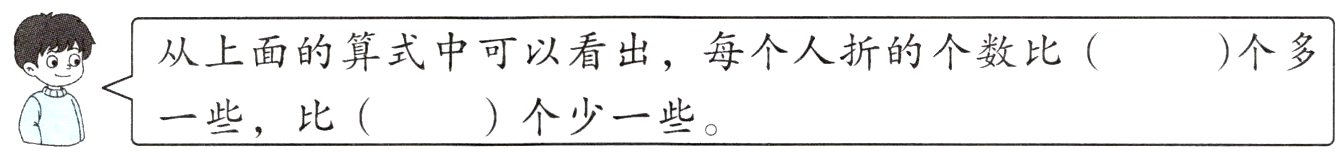 从上面的算式中可以看出，每个人折的个数比（　　　）个多
一些，比（　　　）个少一些。